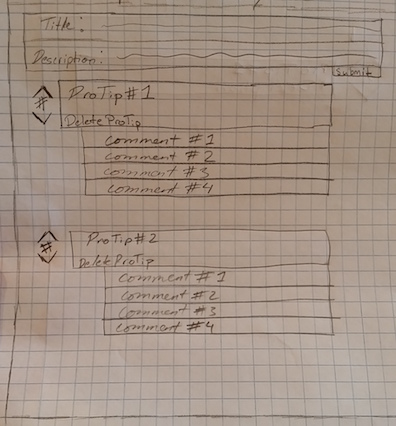 Title:
Description:
Submit
#
ProTip#1
Delete ProTip
comment #1
comment #2
comment #3
comment #4
#
ProTip#2
Delete ProTip
comment #1
comment #2
comment #3
comment #4